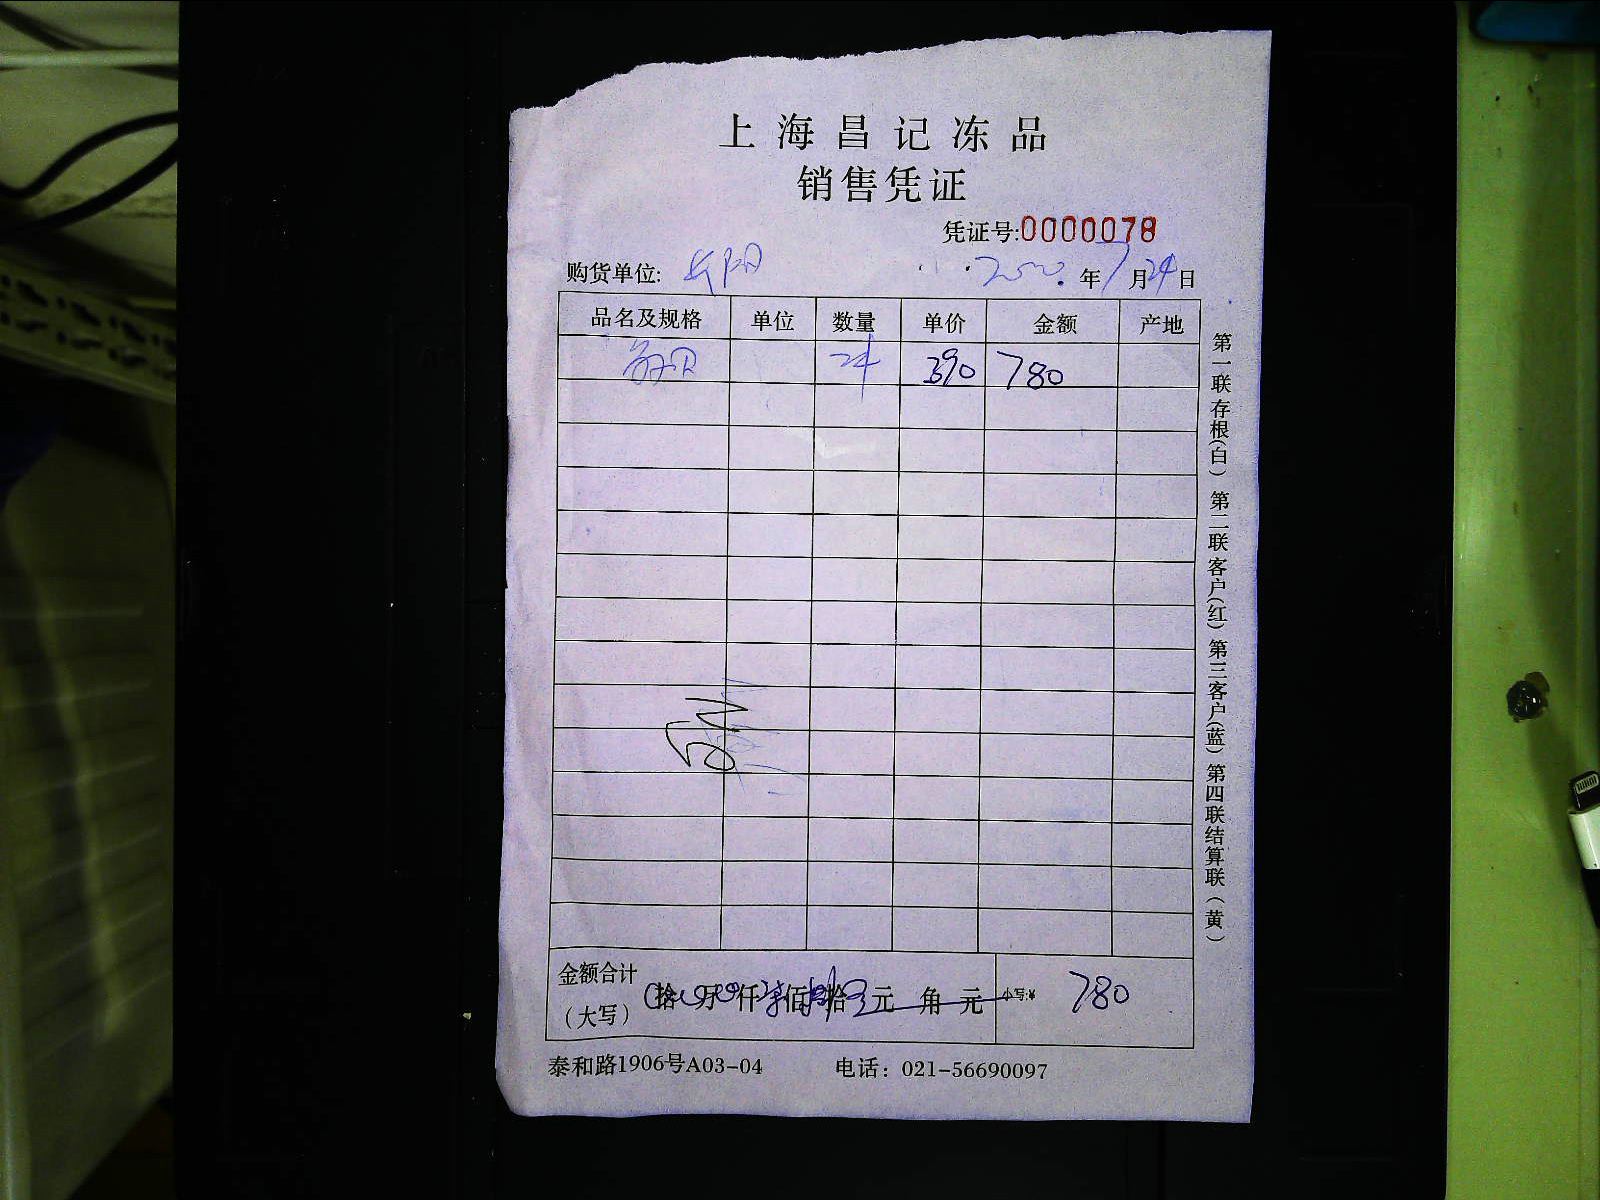 上海昌记冻品
销售凭证
凭证号:0000078
购货单位: 年7月24日
品名及规格 单位 数量 单价 金额 产地
2件 390 780
第一联存根(白) 第二联客户(红) 第三客户(蓝) 第四联结算联(黄)
金额合计
(大写) 拾 万 仟 佰 拾 元 角 元 小写:¥ 780
泰和路1906号A03-04 电话: 021-56690097